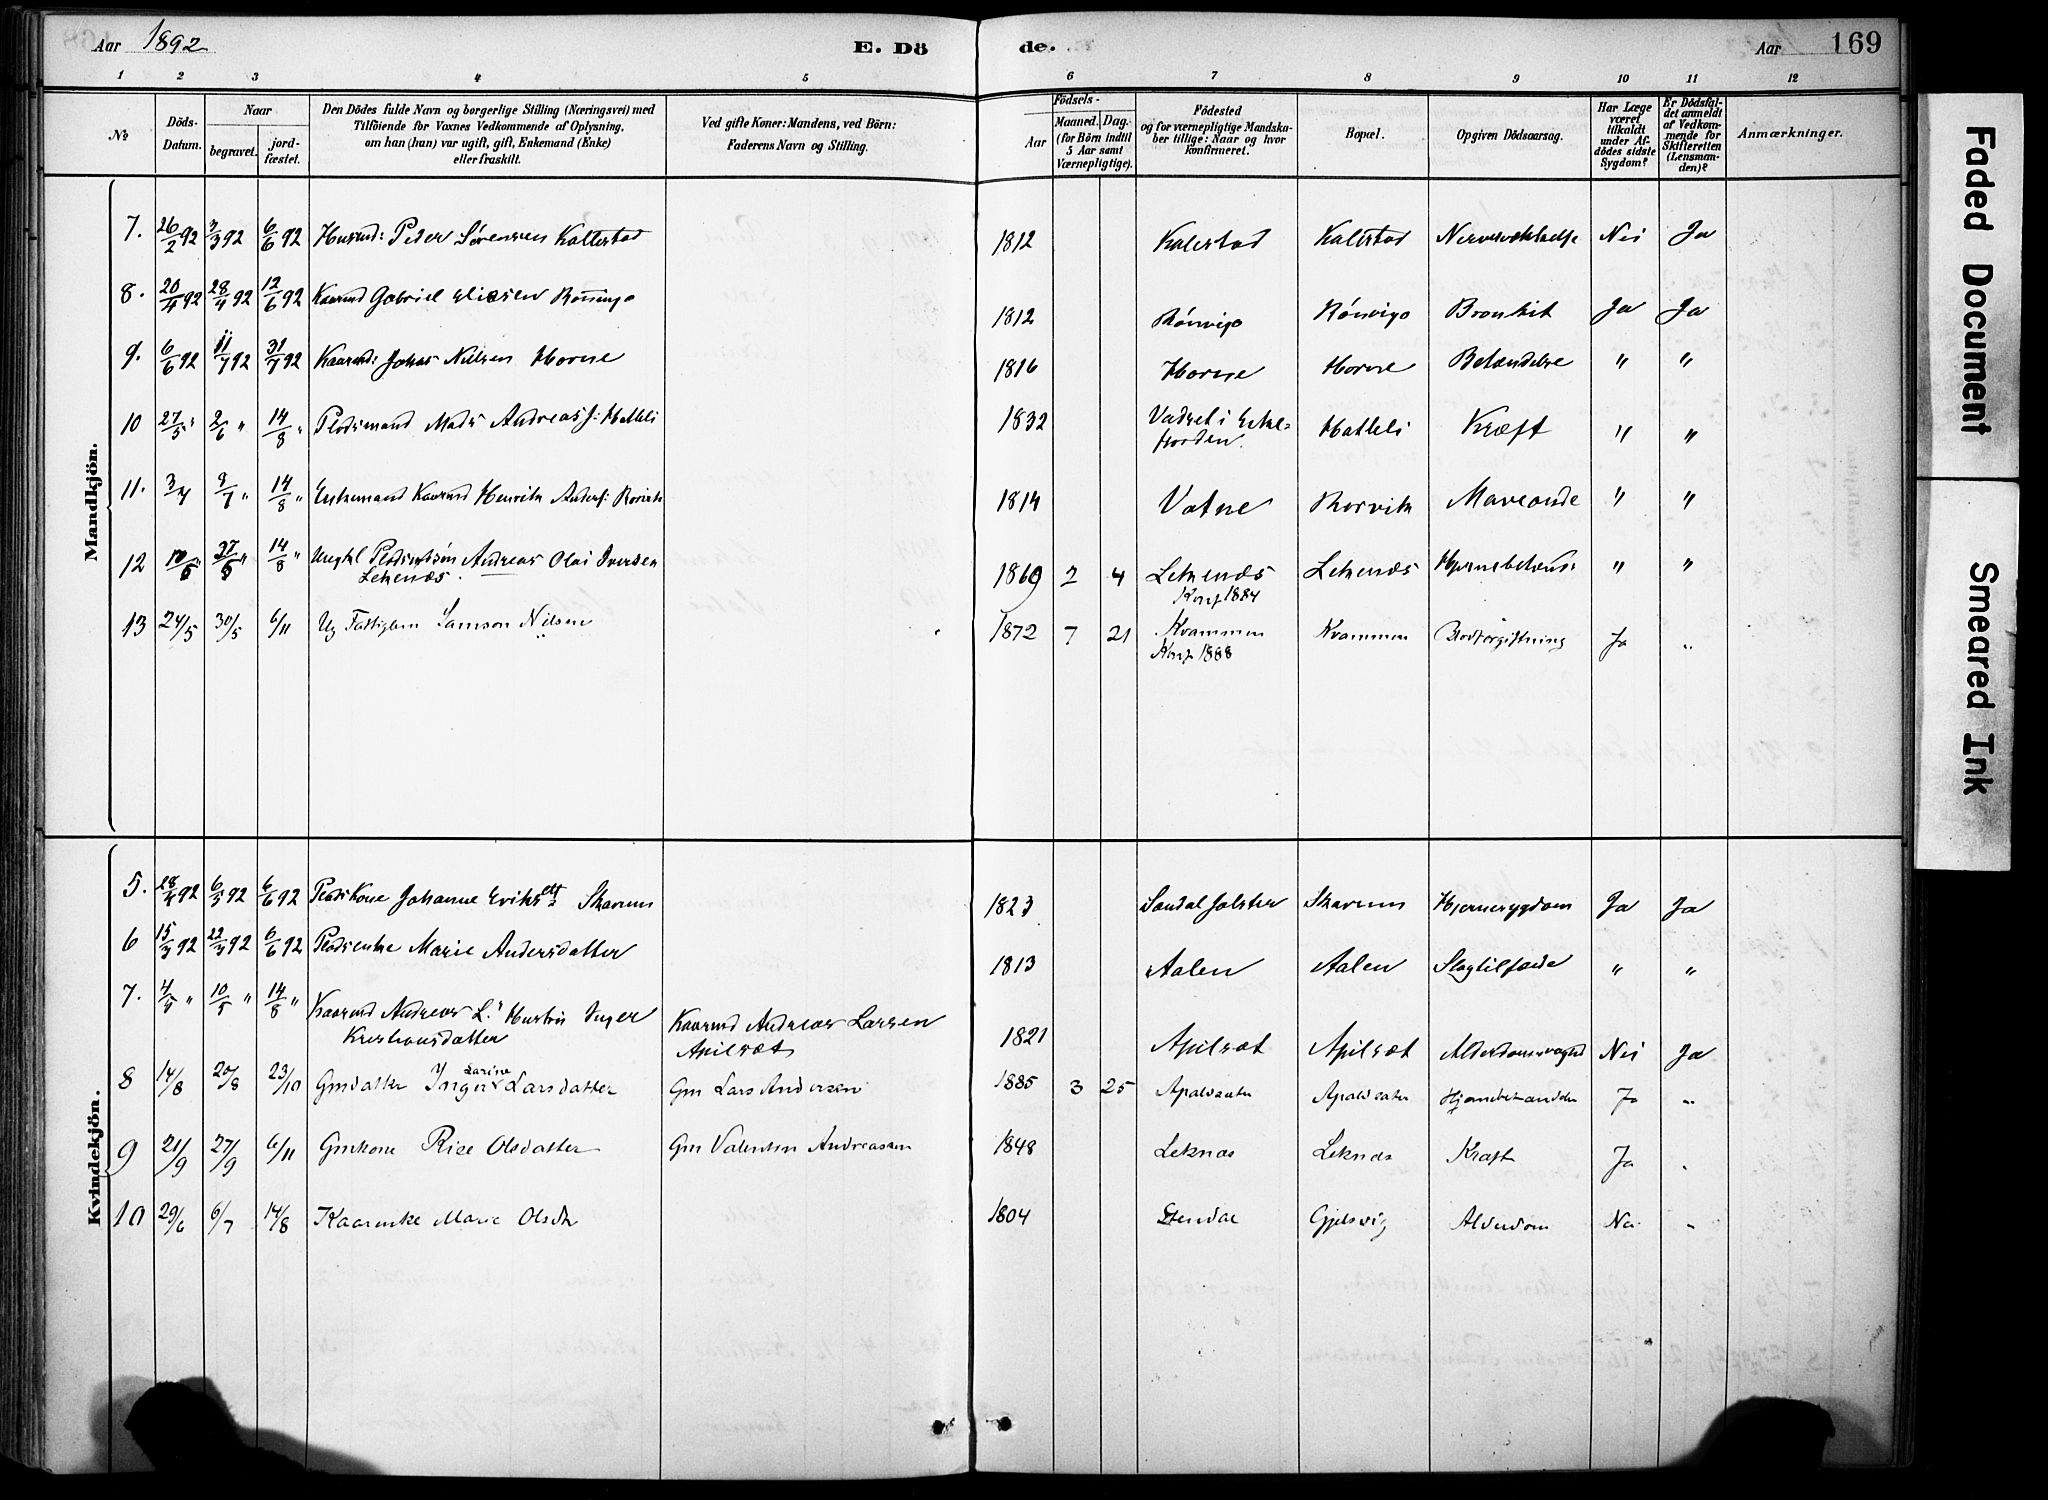 Aar 1892
E. Dö
de.
Aar
169
1 2 3 4 5 6 7 8 9 10 11 12
No
Döds-
Datum.
Naar
begravet.
jord-
fæstet.
Den Dödes fulde Navn og borgerlige Stilling (Næringsvei) med
Tilföiende for Voxnes Vedkommende af Oplysning,
om han (hun) var ugift, gift, Enkemand (Enke)
eller fraskilt.
Ved gifte Koner: Mandens, ved Börn:
Faderens Navn og Stilling.
Födsels-
Aar
Maaned.
Dag.
(for Börn indtil
5 Aar samt
Værnepligtige).
Födested
og for værnepligtige Mandska-
ber tillige: Naar og hvor
konfirmeret.
Bopæl.
Opgiven Dödsaarsag.
Har Læge
været
tilkaldt
under Af-
dödes sidste
Sygdom?
Er Dödsfal-
det anmeldt
af Vedkom-
mende for
Skifteretten
(Lensman-
den)?
Anmærkninger.
Mandkjön.
7. 26/2 92 3/3 92 6/6 92 Husmd: Peder Sørensen Kallestad 1812 Kalestad Kalestad Nei Ja
8. 20/4 92 28/4 92 12/6 92 Kaarmd Gabriel Eliasen 1812 Rönvige Rönvige Bronkit Ja Ja
9. 6/6 92 11/7 92 31/7 92 Kaarmd: Johas Nielsen Horne 1816 Horne Horne Betændelse " "
10 27/5 " 2/6 " 14/8 " Pladsmand Mads Andreasf: Hatleli 1832 Hatleli Kræft " "
11. 3/7 9/7 " 14/8 " Enkemand Kaarmd Henrik Andersf: Rorvik 1814 Vatne Rorvik Maveonde " "
12 14/8 " Andreas Olai Iversen
Leknes. 1869 2 4 Leknæs Leknæs " "
Konf 1884
13 24/5 30/5 6/11 Ug Fattiglem Samson Nilsen 1872 7 21 Kvammen Kvammen Blodforgiftning Ja "
Konf 1888
Kvindekjön.
5. 28/4 92 6/5 92 6/6 92 Pladskone Johanne Eriksdt Skarum 1823 Sandal Jølster Skarum Hjernesygdom Ja Ja
6 15/3 92 22/3 92 6/6 92 Pladsenke Marie Andersdatter 1813 Aalen Aalen Slagtilfælde " "
7. 4/5 " 10/5 " 14/8 " Kaarmd Andreas L.s Hustru Inger
Kristiansdatter Kaarmd Andreas Larsen
Apilsæt 1821 Apilsæt Apilsæt Alderdomssvaghed Nei Ja
8 14/8 20/8 23/10 Gmdatter Inger Larine Larsdatter Gm Lars Andersen 1885 3 25 Apaldsæter Apaldsæter Ja "
9 21/9 27/9 6/11 Gmkone Rise Olsdatter Gm Valentin Andreassen 1848 Leknæs Leknæs Kræft Ja "
10 29/6 6/7 14/8 Kaarenke Marie Olsdtr 1804 Stendal Gjelsvig Alderdom Nei "
Faded Document
Smeared Ink